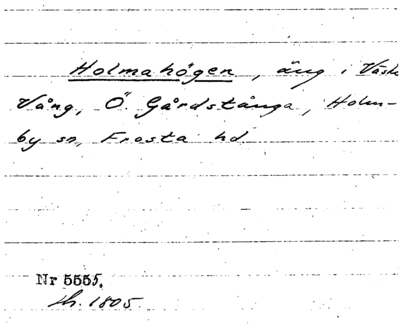 Holmahögen, äng i Väst
Vång, Ö. Gårdstånga, Holm-
by sn, Frosta hd
Nr 5551.
th. 1805